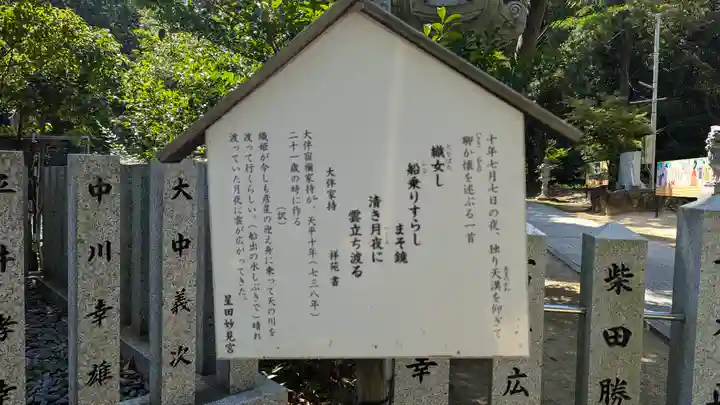 十年七月七日の夜、独り天漢を仰ぎて
聊か懐を述ぶる一首
織女し
船乗りすらし
まそ鏡
清き月夜に
雲立ち渡る
大伴家持
祥苑 書
大伴宿禰家持が、天平十年(七三八年)
二十一歳の時に作る
(訳)
織姫が今しも彦星の迎え舟に乗って天の川を
渡って行くらしい。(船出の水しぶきで)晴れ
渡っていた月夜に雲が広がってきた。
星田妙見宮
平井孝幸
中川幸雄
大中義次
幸
広
柴田勝